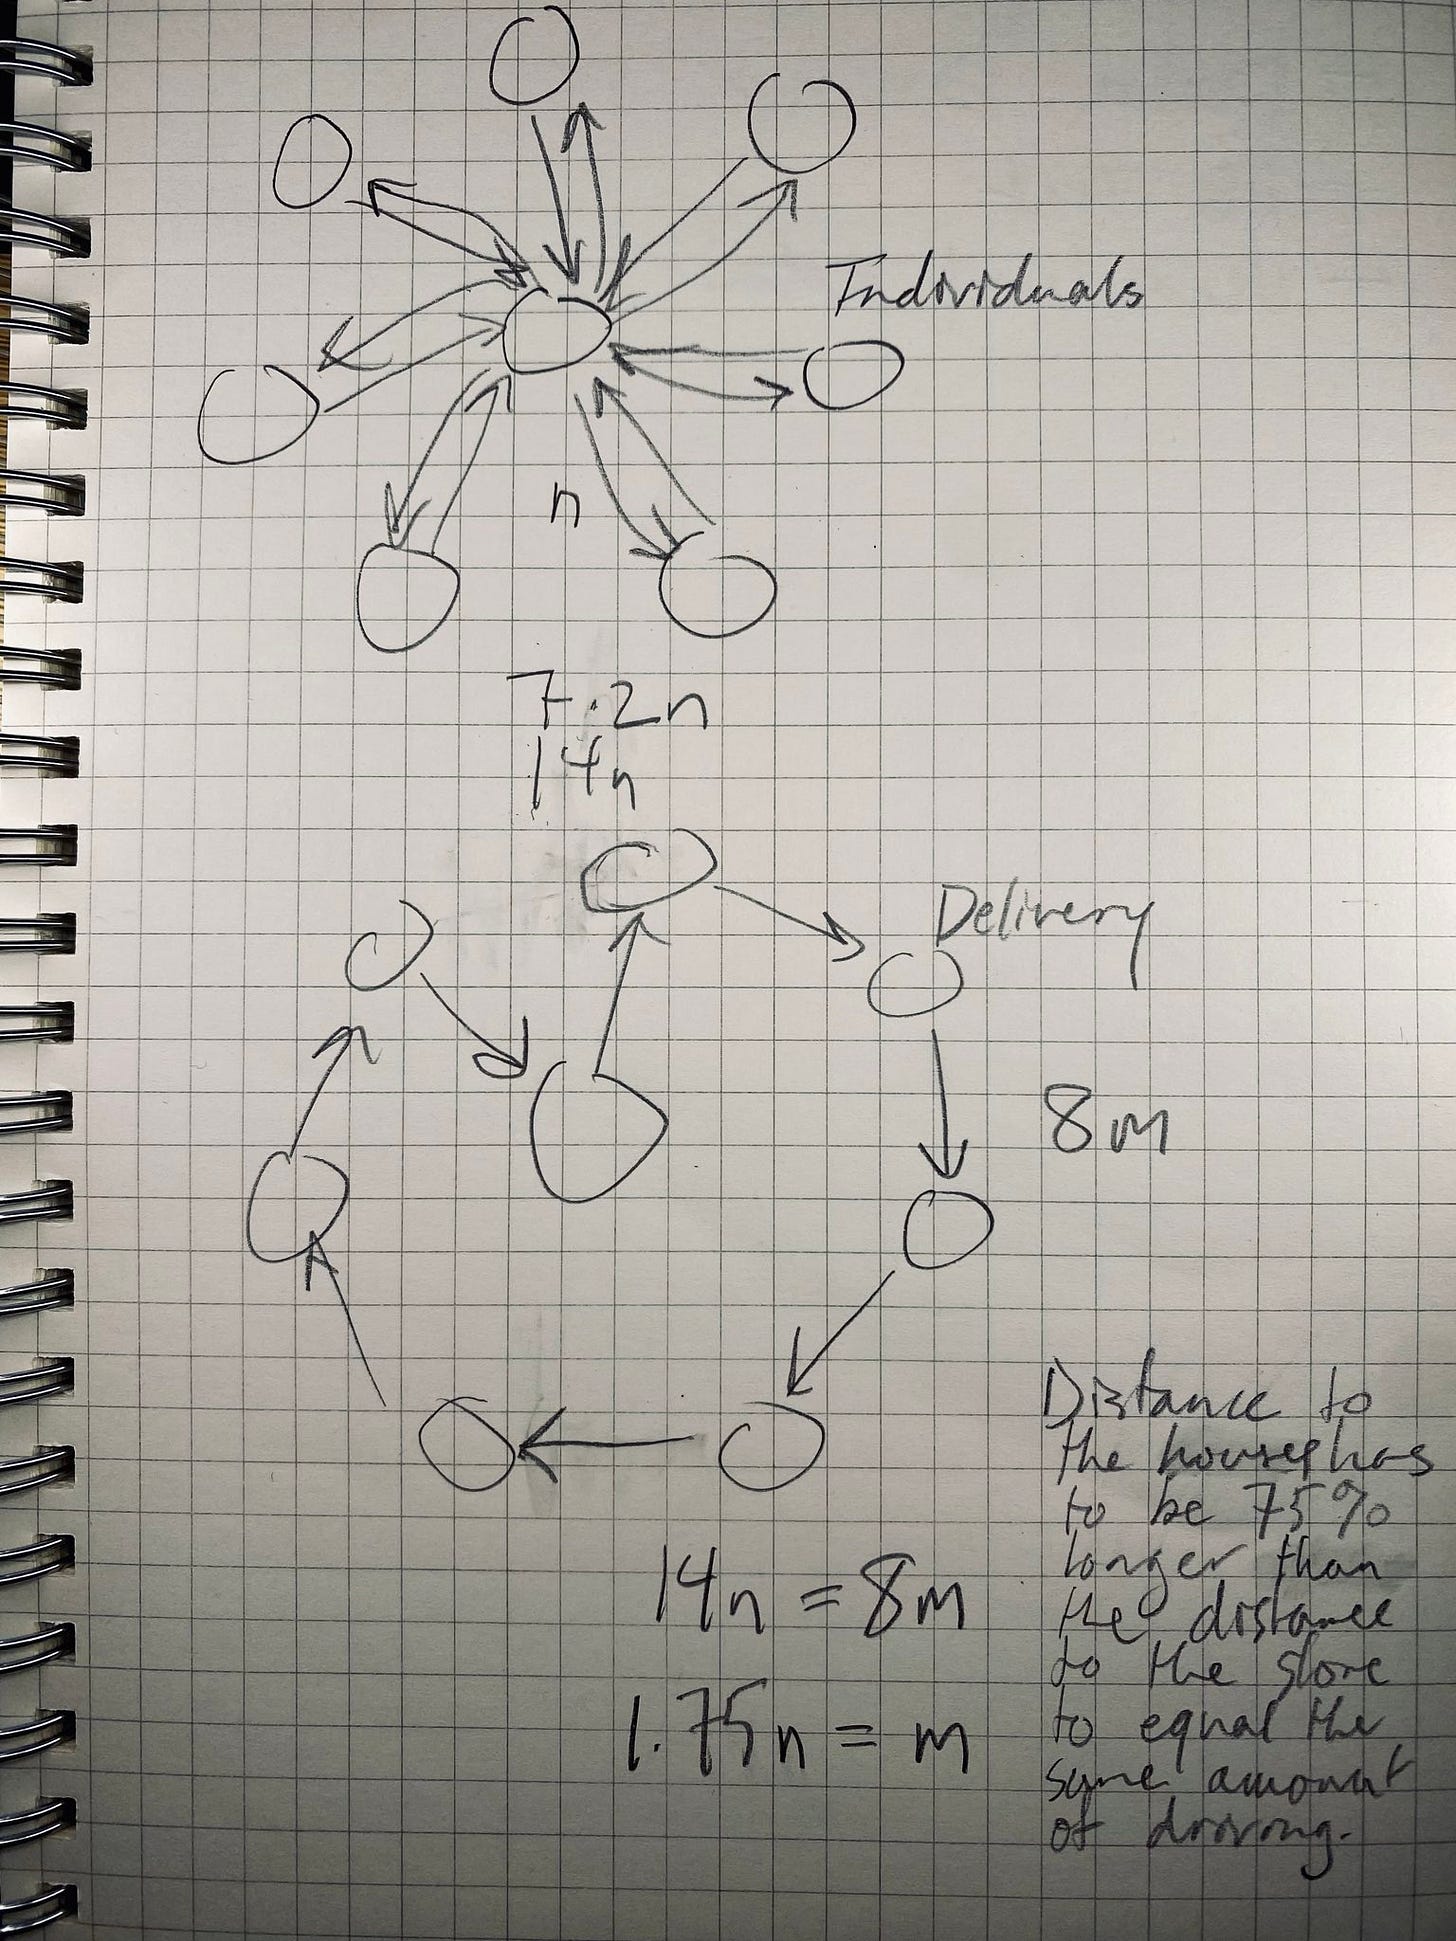 Individuals
n
7.2n
14n
Delivery
8m
Distance to
the houses has
to be 75%
longer than
the distance
to the store
to equal the
same amount
of driving.
14n = 8m
1.75n = m